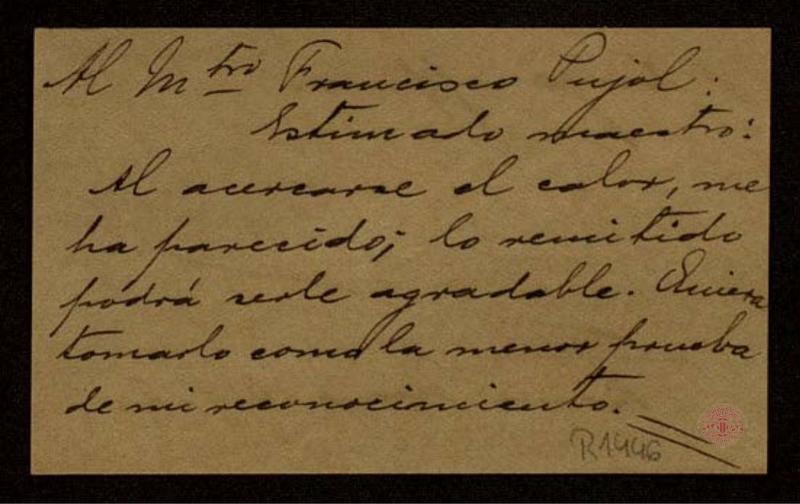 Al Mtro Francisco Pujol:
Estimado maestro:
Al acercarse el calor, me
ha parecido; lo remitido
podrá serle agradable. Quiera
tomarlo como la menor prueba
de mi reconocimiento.
R1446